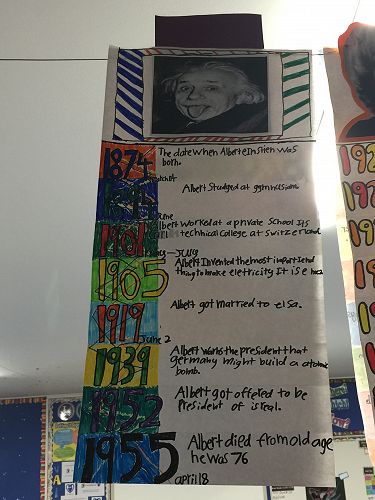 1874
The date when Albert einstien was
born.
Albert Studged at ggmnasium.
June
Albert worked at a private School its
1901
technical College at Switzerland
Albert Invented the most importend
thing to make eletricity. It is e mc2
1905
1919
Albert got married to elsa.
June 2
1939
Albert warns the president that
germany might build a atomic
bomb.
1952
Albert got offered to be
President of isreal.
1955
Albert died from old age
he was 76
april 18